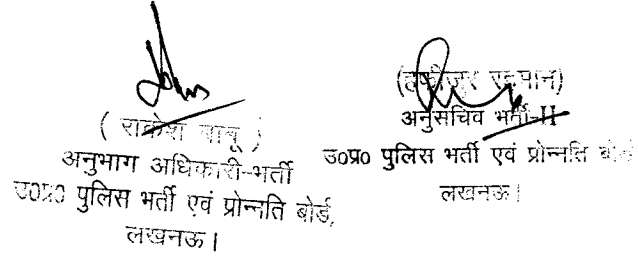 ( राकेश बाबू )
अनुभाग अधिकारी-भर्ती
उ०प्र० पुलिस भर्ती एवं प्रोन्नति बोर्ड,
लखनऊ।
(हफीजुर रहमान)
अनुसचिव भर्ती-II
उ०प्र० पुलिस भर्ती एवं प्रोन्नति बोर्ड
लखनऊ।